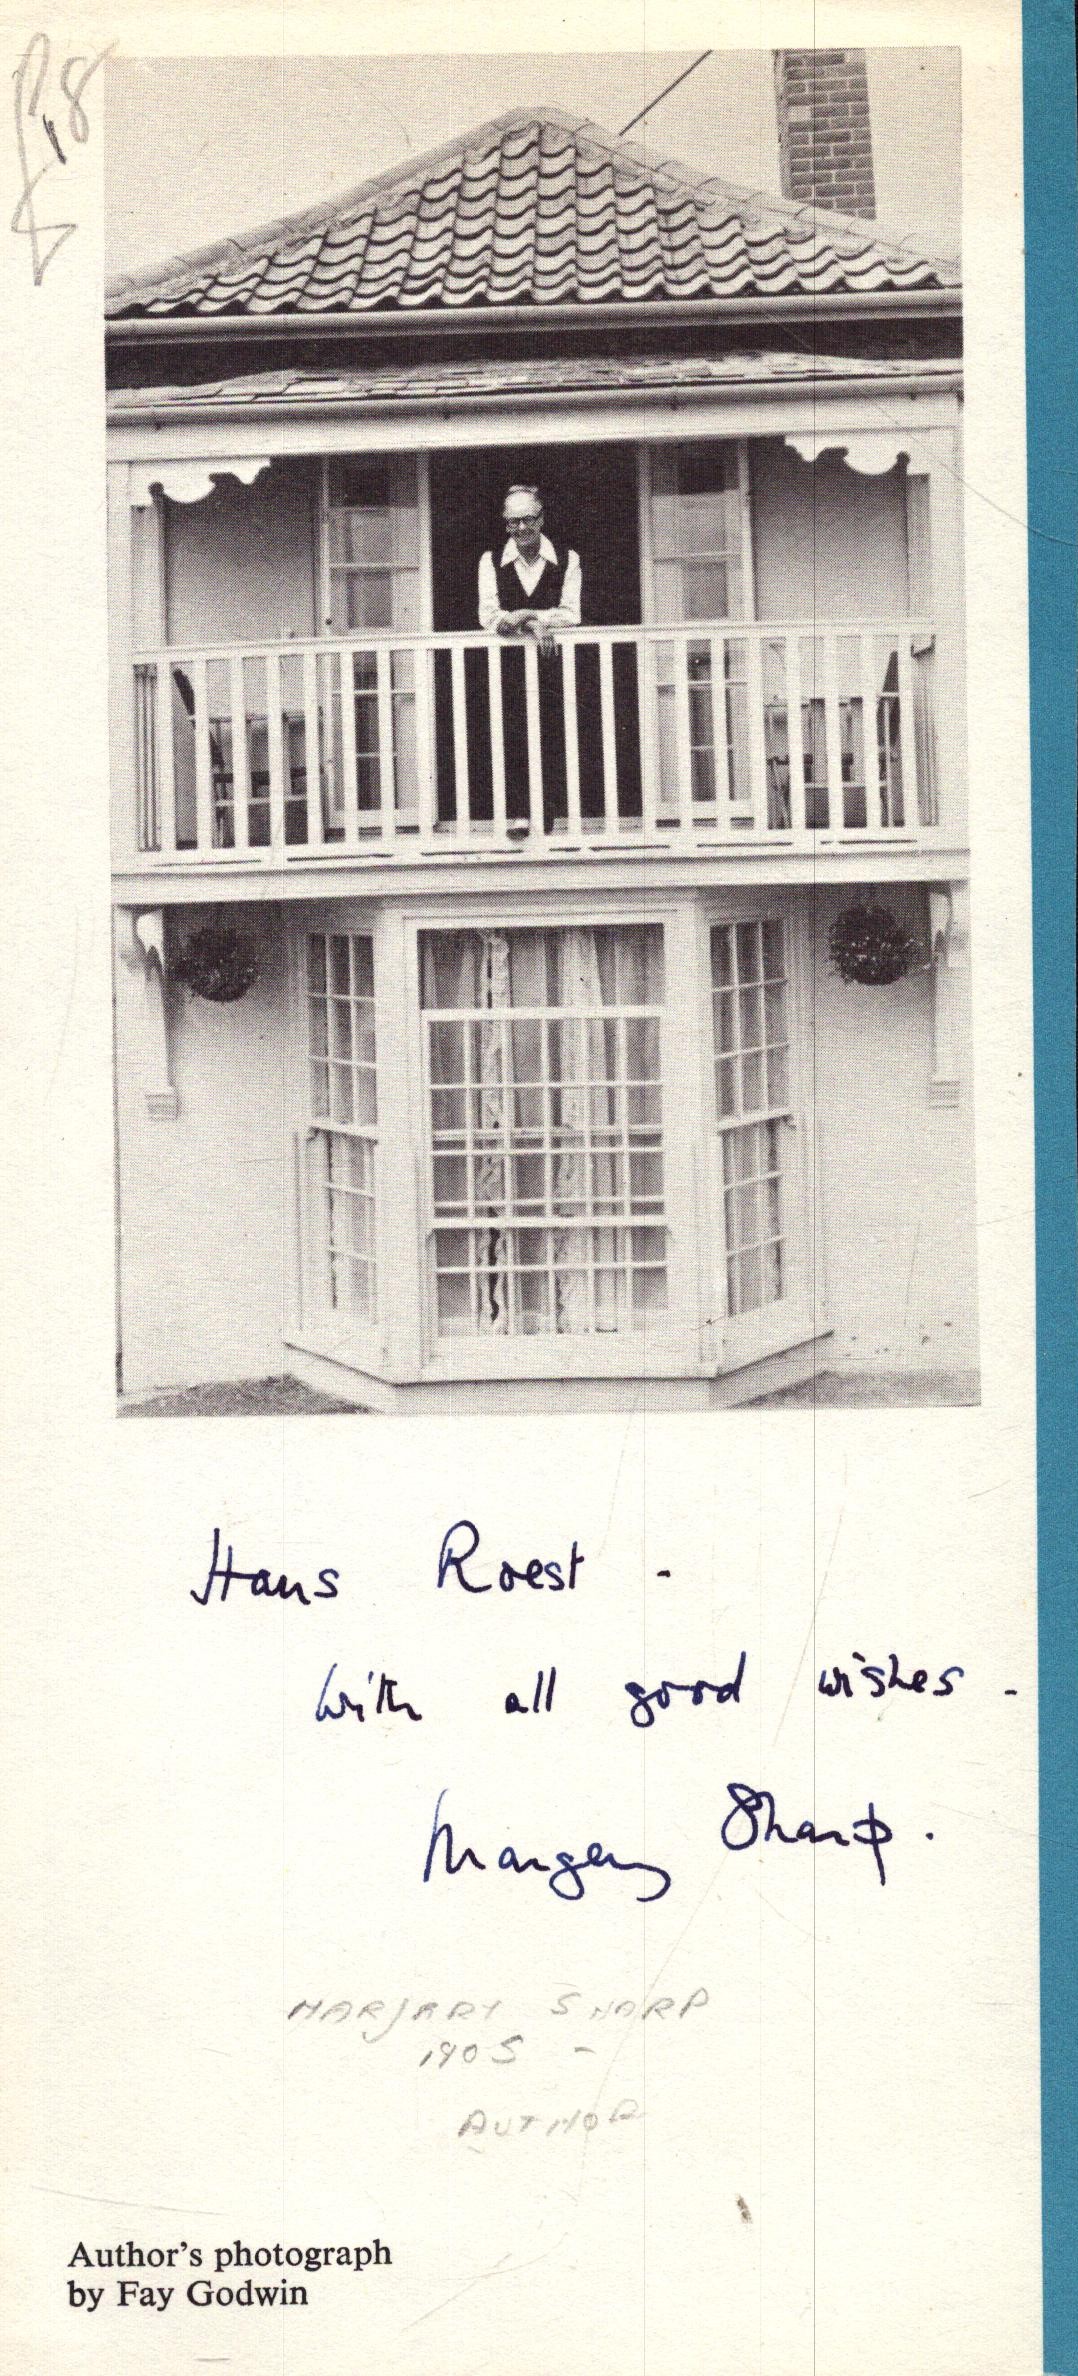 £18
Hans Roest -
With all good wishes -
Margery Sharp.
MARJARY SHARP
1905 -
AUTHOR
Author's photograph
by Fay Godwin